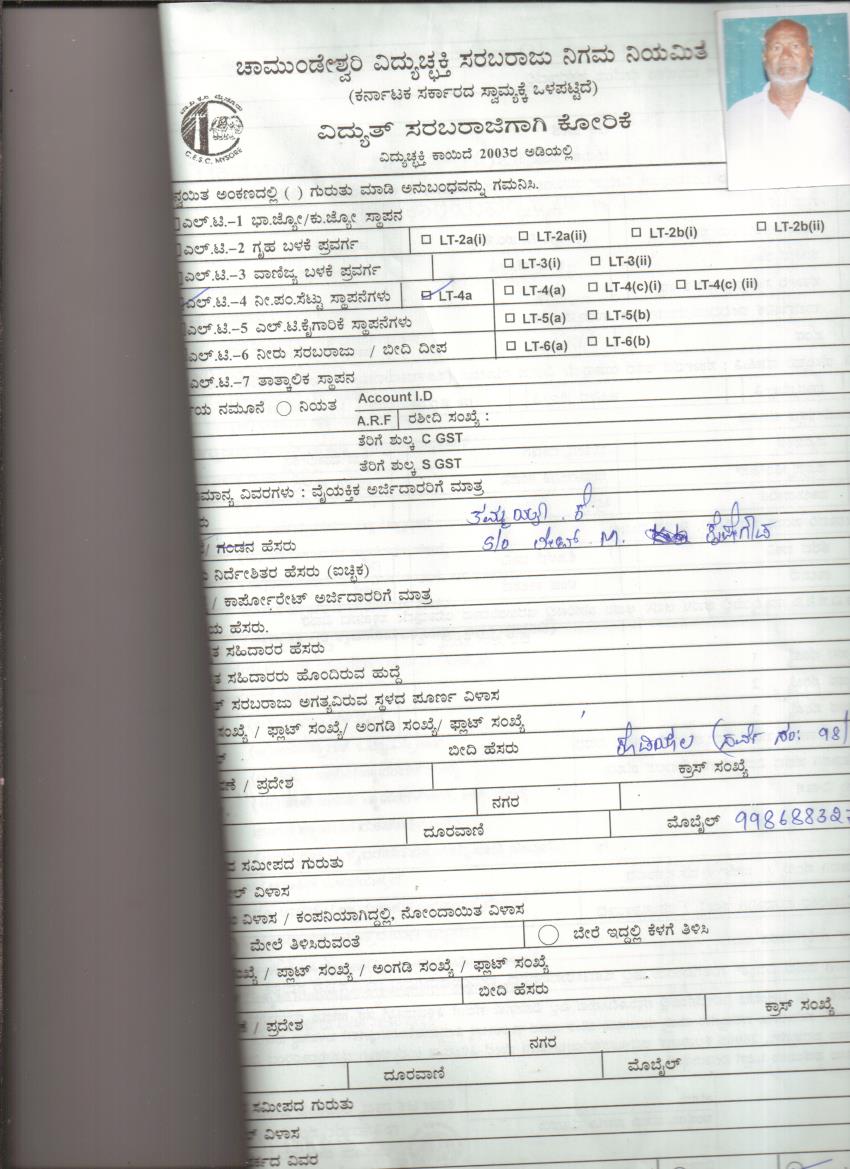 ಚಾಮುಂಡೇಶ್ವರಿ ವಿದ್ಯುಚ್ಛಕ್ತಿ ಸರಬರಾಜು ನಿಗಮ ನಿಯಮಿತ
(ಕರ್ನಾಟಕ ಸರ್ಕಾರದ ಸ್ವಾಮ್ಯಕ್ಕೆ ಒಳಪಟ್ಟಿದೆ)
ವಿದ್ಯುತ್ ಸರಬರಾಜಿಗಾಗಿ ಕೋರಿಕೆ
C.E.S.C, MYSORE
ವಿದ್ಯುಚ್ಛಕ್ತಿ ಕಾಯಿದೆ 2003ರ ಅಡಿಯಲ್ಲಿ
ನ್ವಯಿತ ಅಂಕಣದಲ್ಲಿ ( ) ಗುರುತು ಮಾಡಿ ಅನುಬಂಧವನ್ನು ಗಮನಿಸಿ.
ಎಲ್.ಟಿ.–1 ಭಾ.ಜ್ಯೋ/ಕು.ಜ್ಯೋ ಸ್ಥಾಪನ
ಎಲ್.ಟಿ.–2 ಗೃಹ ಬಳಕೆ ಪ್ರವರ್ಗ LT-2a(i) LT-2a(ii) LT-2b(i) LT-2b(ii)
ಎಲ್.ಟಿ.–3 ವಾಣಿಜ್ಯ ಬಳಕೆ ಪ್ರವರ್ಗ LT-3(i) LT-3(ii)
ಎಲ್.ಟಿ.–4 ನೀ.ಪಂ.ಸೆಟ್ಟು ಸ್ಥಾಪನೆಗಳು LT-4a LT-4(a) LT-4(c)(i) LT-4(c) (ii)
ಎಲ್.ಟಿ.–5 ಎಲ್.ಟಿ.ಕೈಗಾರಿಕೆ ಸ್ಥಾಪನೆಗಳು LT-5(a) LT-5(b)
ಎಲ್.ಟಿ.–6 ನೀರು ಸರಬರಾಜು / ಬೀದಿ ದೀಪ LT-6(a) LT-6(b)
ಎಲ್.ಟಿ.–7 ತಾತ್ಕಾಲಿಕ ಸ್ಥಾಪನ
ಯ ನಮೂನೆ ನಿಯತ Account I.D
A.R.F ರಶೀದಿ ಸಂಖ್ಯೆ :
ತೆರಿಗೆ ಶುಲ್ಕ C GST
ತೆರಿಗೆ ಶುಲ್ಕ S GST
ಮಾನ್ಯ ವಿವರಗಳು : ವೈಯಕ್ತಿಕ ಅರ್ಜಿದಾರರಿಗೆ ಮಾತ್ರ
ರು ತಮ್ಮಯ್ಯ ಕೆ.
/ ಗಂಡನ ಹೆಸರು S/o ಲೇಟ್ M.
ನಿರ್ದೇಶಿತರ ಹೆಸರು (ಐಚ್ಛಿಕ)
/ ಕಾರ್ಪೋರೇಟ್ ಅರ್ಜಿದಾರರಿಗೆ ಮಾತ್ರ
ಯ ಹೆಸರು.
ತ ಸಹಿದಾರರ ಹೆಸರು
ತ ಸಹಿದಾರರು ಹೊಂದಿರುವ ಹುದ್ದೆ
ಸರಬರಾಜು ಅಗತ್ಯವಿರುವ ಸ್ಥಳದ ಪೂರ್ಣ ವಿಳಾಸ
ಸಂಖ್ಯೆ / ಫ್ಲಾಟ್ ಸಂಖ್ಯೆ/ ಅಂಗಡಿ ಸಂಖ್ಯೆ/ ಫ್ಲಾಟ್ ಸಂಖ್ಯೆ
ಬೀದಿ ಹೆಸರು ಕೊಡಿಯಾಲ (ಸರ್ವೆ ನಂ: 98)
ಣೆ / ಪ್ರದೇಶ ಕ್ರಾಸ್ ಸಂಖ್ಯೆ
ನಗರ
ದೂರವಾಣಿ ಮೊಬೈಲ್ 998688327
ದ ಸಮೀಪದ ಗುರುತು
ಲ್ ವಿಳಾಸ
ವಿಳಾಸ / ಕಂಪನಿಯಾಗಿದ್ದಲ್ಲಿ, ನೋಂದಾಯಿತ ವಿಳಾಸ
ಮೇಲೆ ತಿಳಿಸಿರುವಂತೆ ಬೇರೆ ಇದ್ದಲ್ಲಿ ಕೆಳಗೆ ತಿಳಿಸಿ
ಖ್ಯೆ / ಪ್ಲಾಟ್ ಸಂಖ್ಯೆ / ಅಂಗಡಿ ಸಂಖ್ಯೆ / ಫ್ಲಾಟ್ ಸಂಖ್ಯೆ
ಬೀದಿ ಹೆಸರು
/ ಪ್ರದೇಶ ಕ್ರಾಸ್ ಸಂಖ್ಯೆ
ನಗರ
ದೂರವಾಣಿ ಮೊಬೈಲ್
ಸಮೀಪದ ಗುರುತು
ವಿಳಾಸ
ರ್ಕದ ವಿವರ